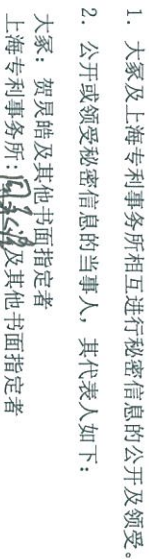 1. 大冢及上海专利事务所相互进行秘密信息的公开及领受。
2. 公开或领受秘密信息的当事人，其代表人如下：
大冢：贺炅皓及其他书面指定者
上海专利事务所：及其他书面指定者